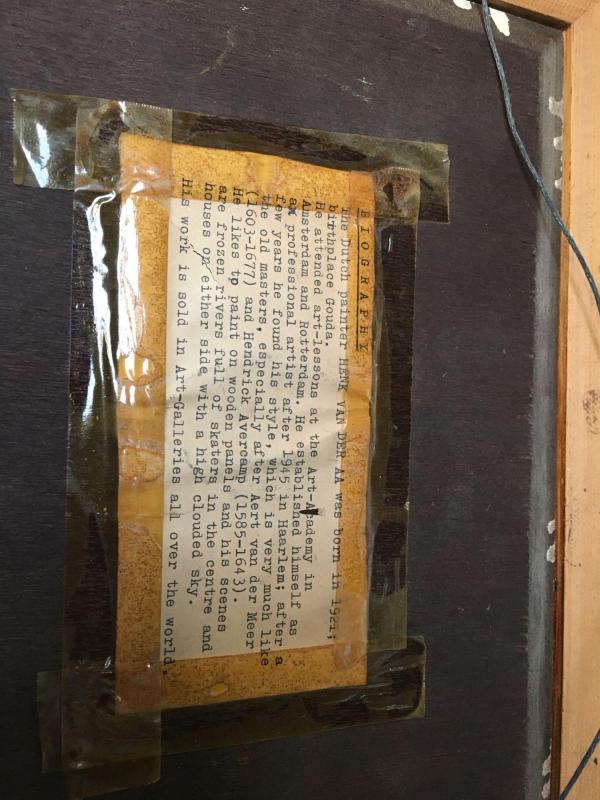 BIOGRAPHY
The Dutch painter HENK VAN DER AA was born in 1921;
birthplace Gouda.
He attended art-lessons at the Art-Academy in
Amsterdam and Rotterdam. He established himself as
an professional artist after 1945 in Haarlem; after a
few years he found his style, which is very much like
the old masters, especially after Aert van der Meer
(1603-1677) and Hendrick Avercamp (1585-1643).
He likes to paint on wooden panels and his scenes
are frozen rivers full of skaters in the centre and
houses on either side with a high clouded sky.
His work is sold in Art-Galleries all over the world.